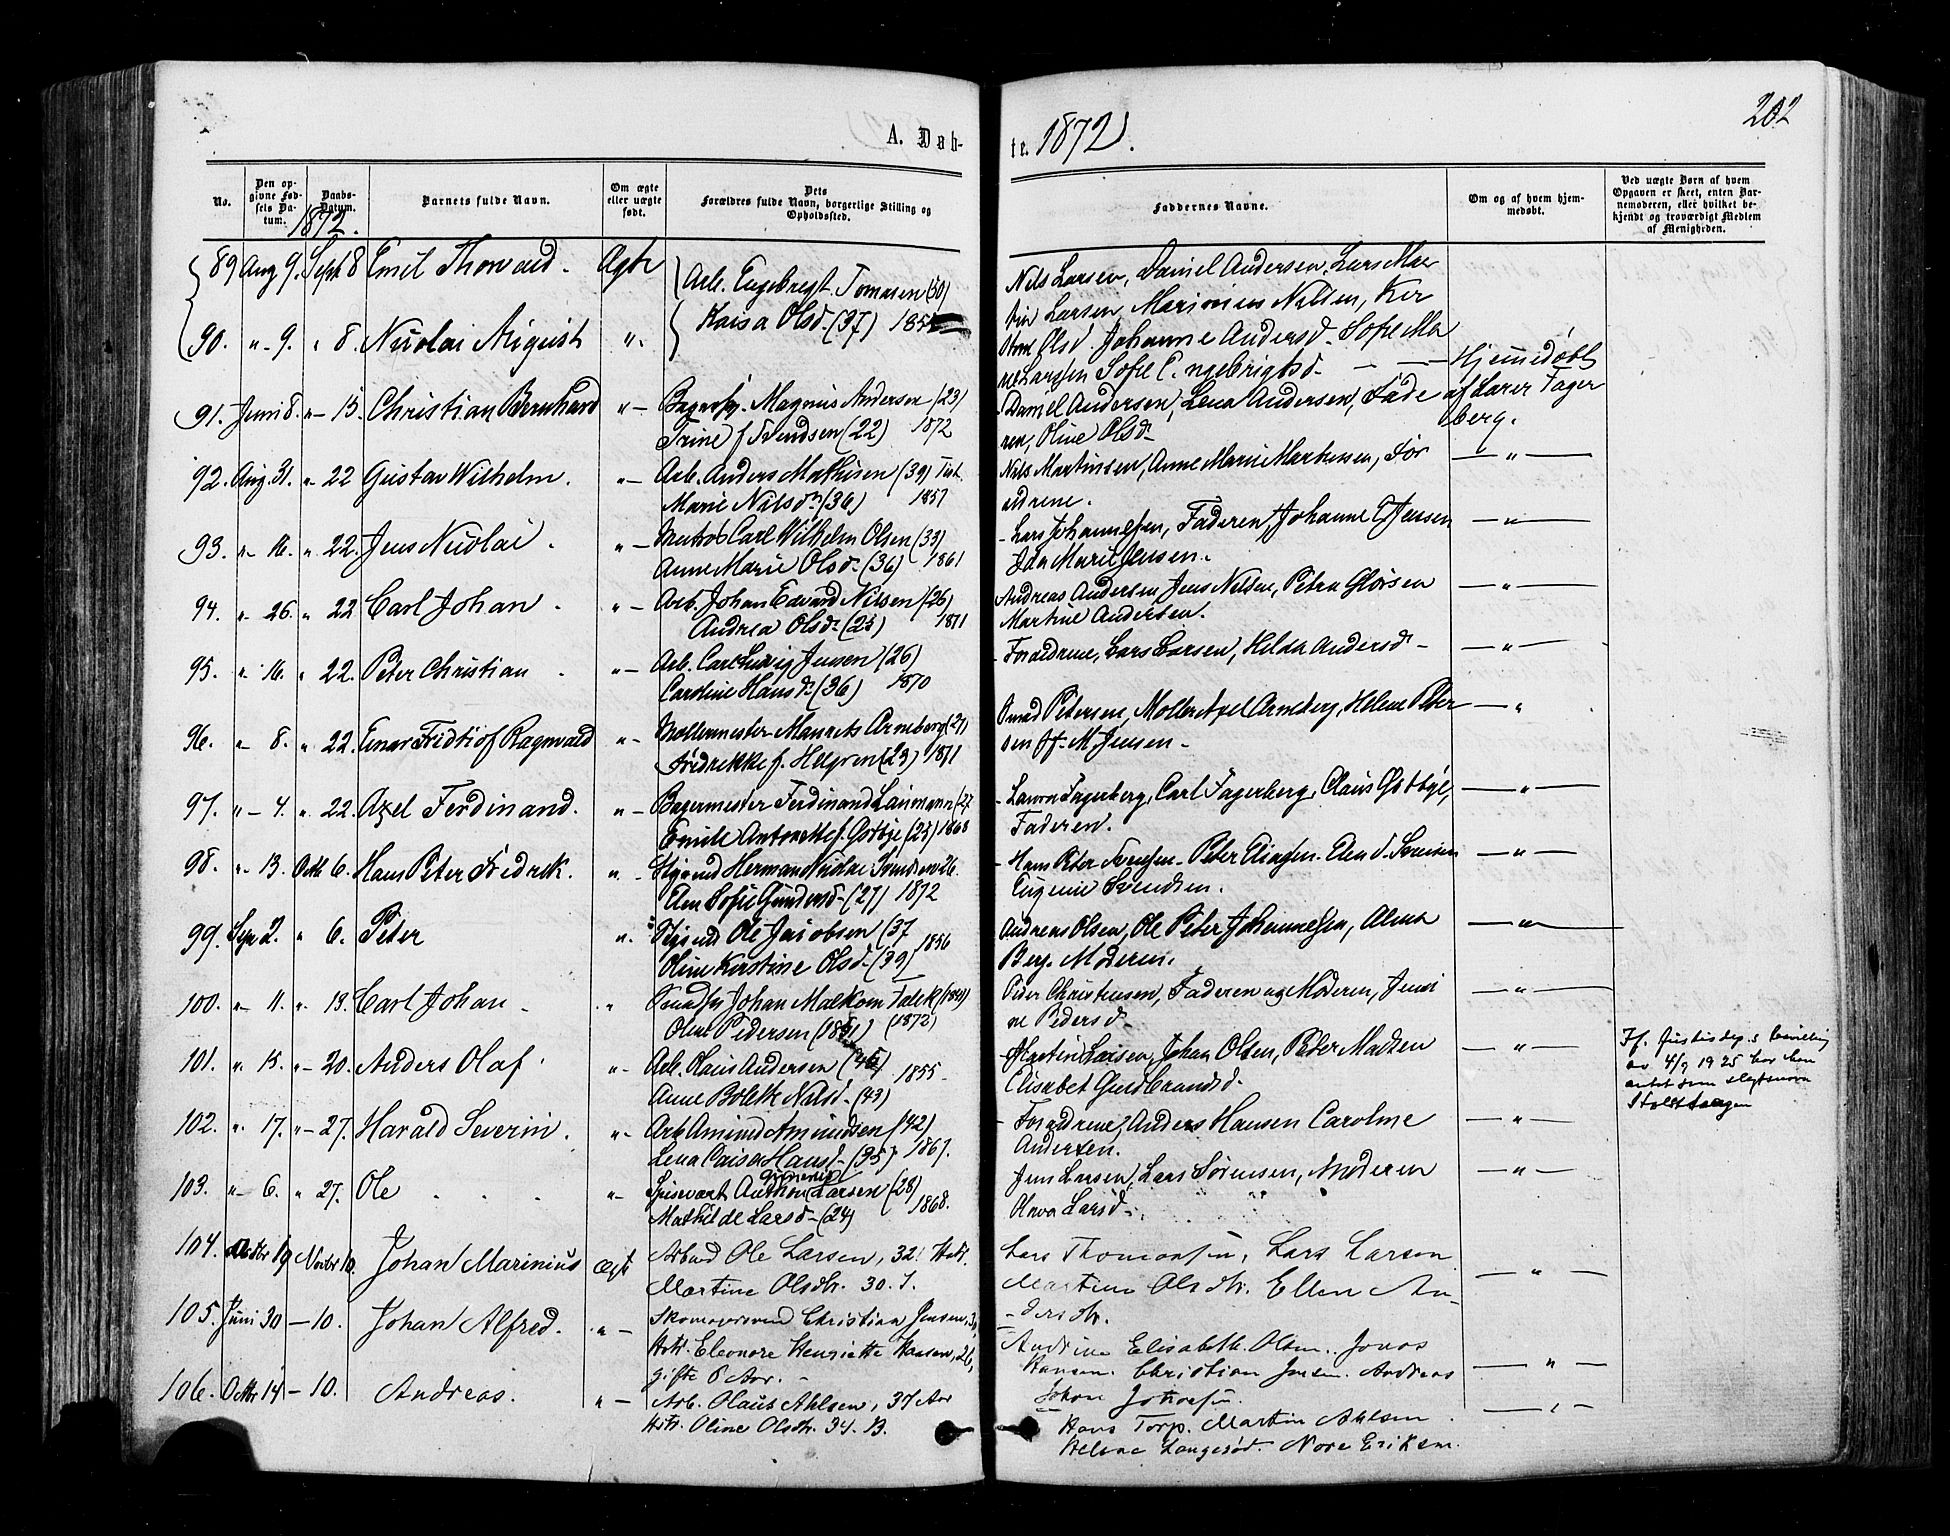 202
A. Døb-
te. 1872.
No.
Den op-
givne Fød-
sels Da-
tum.
Daabs-
Datum.
Barnets fulde Navn.
Om ægte
eller uægte
født.
Dets
Forældres fulde Navn, borgerlige Stilling og
Opholdssted.
Faddernes Navne.
Om og af hvem hjem-
medøbt.
Ved uægte Børn af hvem
Opgaven er skeet, enten Bar-
nemoderen, eller hvilket be-
kjendt og troværdigt Medlem
af Menigheden.
1872.
89 Aug 9. Sept 8 Emil Thorvald. Ægte
Arb. Engebregt Tomasen (50)
Kaisa Olsd. (37)
Nils Larsen, Daniel Andersen, Lars Mar
tin Larsen, Marinius Nilsen, Ker
90. " 9. " 8. Nicolai August "
stine Olsd Johanne Andersd. Sofie Ma
rie Larssen Sofie Engebrigtsd. — — Hjemmedøbt
91. Juni 8. " 15. Christian Bernhard " Magnus Andersen (23)
Trine f. Svendsen (22) 1872
Daniel Andersen, Lena Andersen, Fade
ren, Oline Olsd
af Lærer Fager
berg.
92. Aug. 31. " 22 Gustav Wilhelm. " Arb. Anders Mathisen (39)
Marie Nilsd. (36) 1857
Nils Martinsen, Anne Marie Martinsen, For
ældrene.
— " —
93. " 16. " 22. Jens Nicolai. " Matros Carl Wilhelm Olsen (33)
Anne Marie Olsd. (36) 1861
Lars Johannessen, Faderen, Johanne Jensen
Ida Marie Jensen.
— " —
94. " 26. " 22 Carl Johan. " Arb. Johan Edvard Nilsen (26)
Andrea Olsd. (25) 1871
Andreas Andersen, Jens Nilsen, Petra Glørsen
Martine Andersen.
— " —
95. " 16. " 22. Peter Christian. " Arb. Carl Ludvig Jensen (26)
Caroline Hansd. (36) 1870
Forældrene, Lars Larsen, Hilda Andersd —
— " —
96. " 8. " 22. Einar Fridtiof Ragnvald " Møllermester Maurits Arneberg (27)
Fredrikke f. Helgren (23) 1871
Petersen, Møller Axel Arneberg, Helene Peter
sen M. Jensen.
— "
97. " 4. " 22. Axel Ferdinand. " Bagermester Ferdinand Laumann (27
Emilie Antonette f. Østbye (25) 1868
Laura Fagerberg, Carl Fagerberg, Claus Østbye,
Faderen.
— " —
98. " 13. Octb 6. Hans Peter Fredrik. " Styrmd Herman Nicolai Svendsen 26
Elen Sofie Gundersd. (27) 1872
Hans Peter Svensen. Peter Eliasen. Elen d. Svensen
Eugenie Svendsen.
— " —
99. Sep 2. " 6. Peter " Ole Jacobsen (37
Oline Kirstine Olsd. (39) 1856
Andreas Olsen, Ole Peter Johannesen, Alma
Berg. Moderen.
— " —
100. " 11. " 13. Carl Johan. " Johan Malkom Falck
Oline Pedersen (1872)
Peter Christensen, Faderen og Moderen, Jensi
ne Pedersd.
— " —
101. " 15. " 20. Anders Olaf. " Arb. Olaus Andersen (45) 1855
Anne Bolette Nilsd. (43)
Martin Larsen, Johan Olsen, Peter Madsen
Elisabet Gudbrandsd.
— " —
If. Justisdep.s bevilling
av 4/9 1925 har han
antat som slegtsnavn
102. " 17. " 27. Harald Severin. " Arb. Amund Amundsen (42)
Lena Caisa Hansd. (35) 1867.
Forældrene, Anders Hansen Caroline
Andersen.
— " —
103. " 6. " 27. Ole " Anthon Larsen (28)
Mathilde Larsd. (24) 1868.
Jens Larsen, Lars Sørensen, Moderen
Larsd.
— " —
104. Octbr 19 Novbr 10. Johan Marinius Ægt Arbmd Ole Larsen, 32. Hstr.
Martine Olsdtr. 30.
Lars Thomassen, Lars Larsen
Martine Olsdtr. Ellen An-
dersdtr.
— " —
105. Juni 30 — 10. Johan Alfred. " — Skomagersvend Christian Jensen, 30,
Hstr. Eleonore Henriette Hansen, 26,
gifte 8 Aar.
Andrine Elisabeth Olsen. Jonas
Hansen. Christian Jensen. Andreas
Johan
— " —
106. Octbr 14 — 10. Andreas. " — Arb. Olaus Ahlsen, 37 Aar
Hstr. Oline Olsdtr. 34. B.
Hans Torp. Martin Ahlsen.
Helene Langerød. Nore Eriksen.
— " —